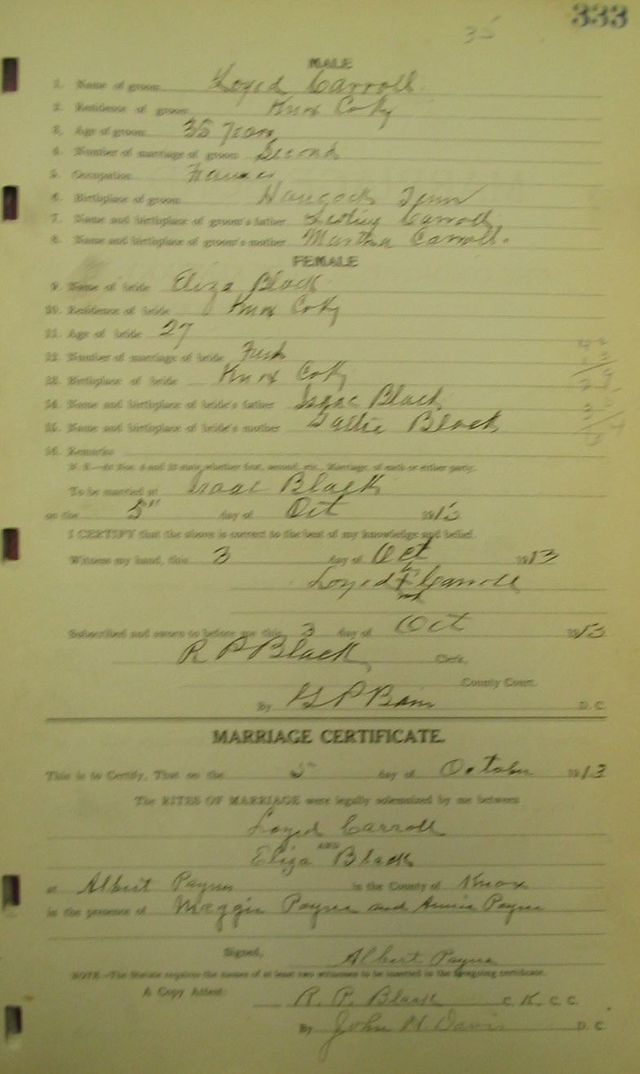 333
35
MALE
1. Name of groom Loyed Carroll
2. Residence of groom Knox Co Ky
3. Age of groom 35 years
4. Number of marriage of groom Second
5. Occupation Farmer
6. Birthplace of groom Hancock Tenn
7. Name and birthplace of groom's father Carroll
8. Name and birthplace of groom's mother Martha Carroll.
FEMALE
9. Name of bride Eliza Black
10. Residence of bride Knox Co Ky
11. Age of bride 27
12. Number of marriage of bride First
13. Birthplace of bride Knox Co Ky
14. Name and birthplace of bride's father Isaac Black
15. Name and birthplace of bride's mother Sallie Black
16. Remarks
N. B.—At Nos. 4 and 12 state whether first, second, etc., Marriage, of each or either party.
To be married at Isaac Black
on the 5th day of Oct 1913
I CERTIFY that the above is correct to the best of my knowledge and belief.
Witness my hand, this 3 day of Oct 1913
Loyed X Carroll
Subscribed and sworn to before me this 3 day of Oct 1913
R P Black, Clerk,
County Court.
By G P Bain D. C.
MARRIAGE CERTIFICATE.
This is to Certify, That on the 5th day of October 1913
The RITES OF MARRIAGE were legally solemnized by me between
Loyed Carroll
AND
Eliza Black
at Albert Payne in the County of Knox
in the presence of Maggie Payne and Annie Payne
Signed, Albert Payne
NOTE—The Statute requires the names of at least two witnesses to be inserted in the foregoing certificate.
A Copy Attest: R. P. Black C. K. C. C.
By John H Davis D. C.